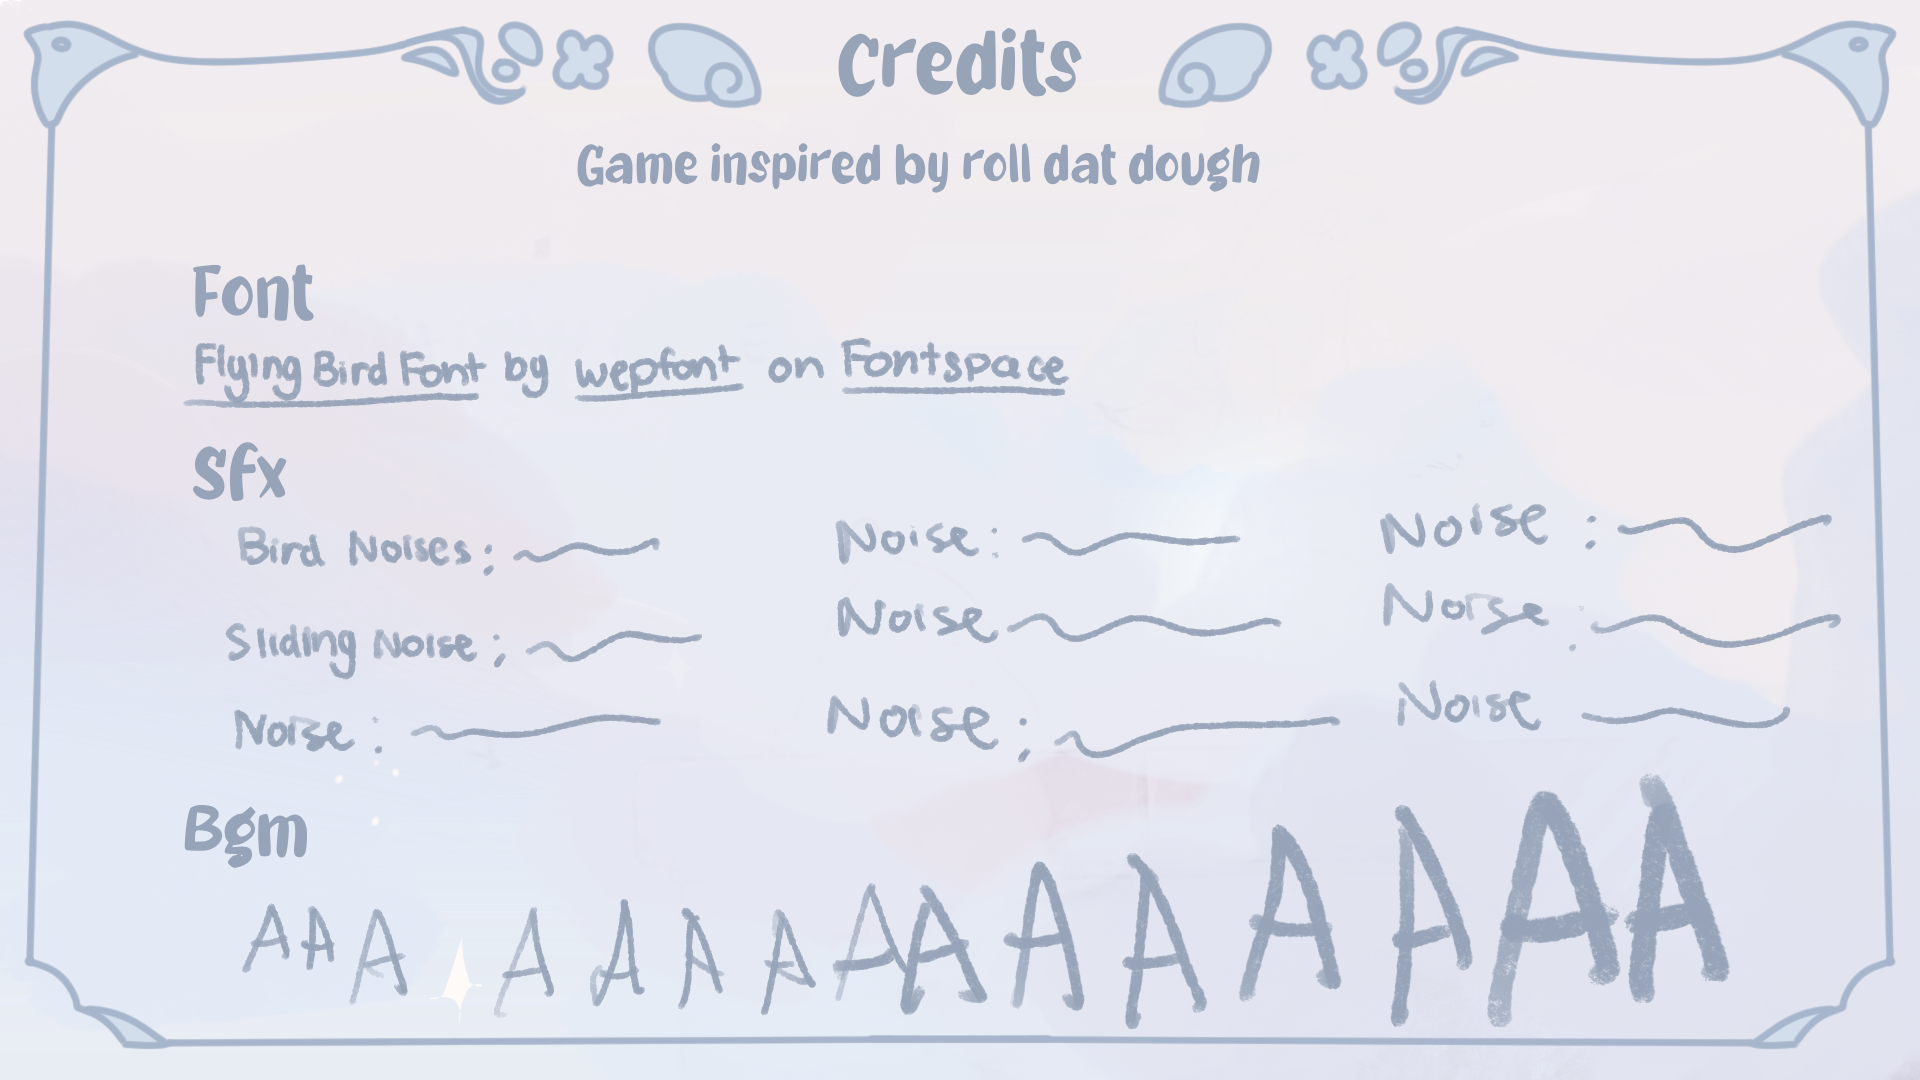 Credits
Game inspired by roll dat dough
Font
Flying Bird Font by wepfont on Fontspace
Sfx
Bird Noises: Noise: Noise:
Sliding Noise: Noise Noise:
Noise: Noise: Noise
Bgm
A A A A A A A A A A A A A A A